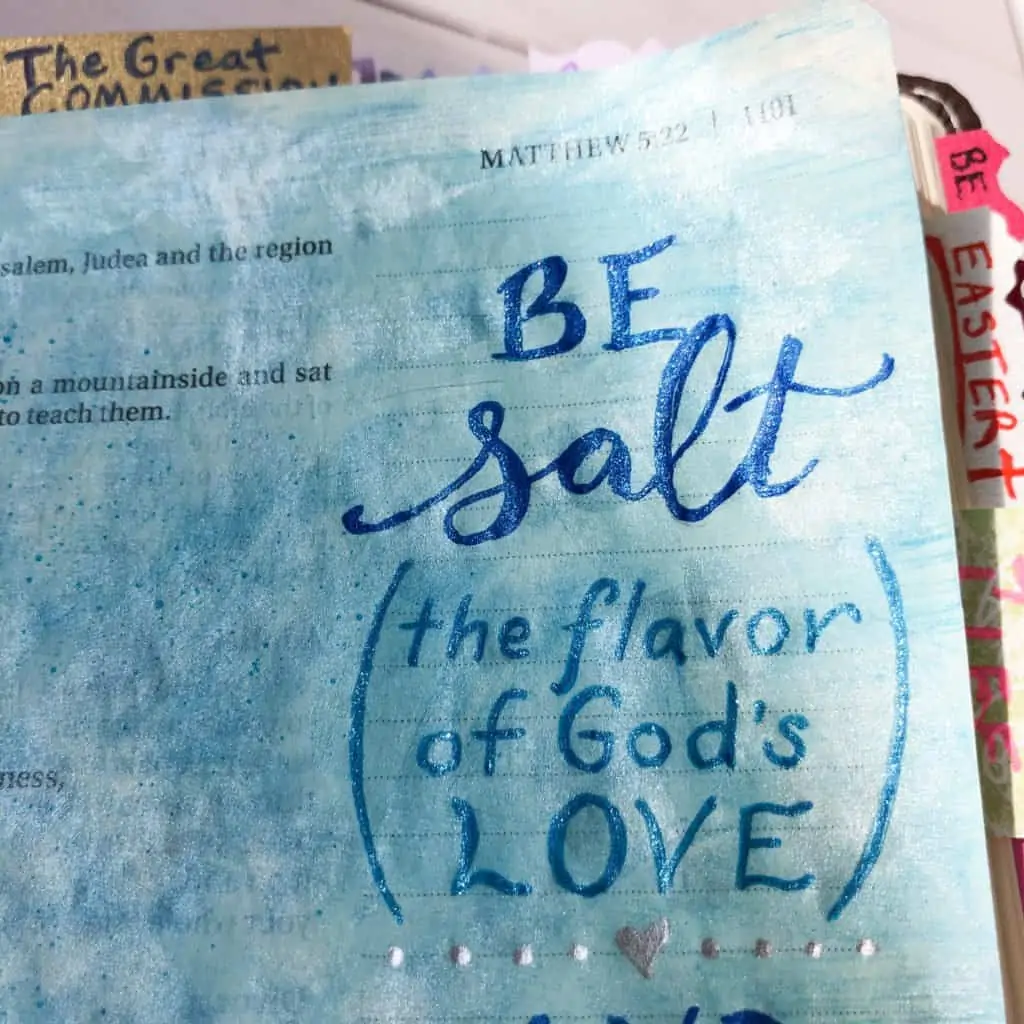 The Great
COMMISSION
MATTHEW 5:22 | 1101
salem, Judea and the region
on a mountainside and sat
to teach them.
ness,
BE
salt
(the flavor
of God's
LOVE)
BE
EASTER